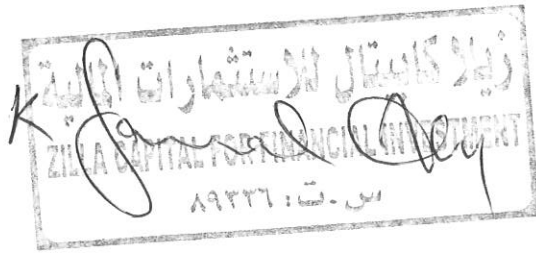 زيلا كابيتال للاستثمارات المالية
ZILLA CAPITAL FOR FINANCIAL INVESTMENT
س.ت: ٨٩٣٣٦